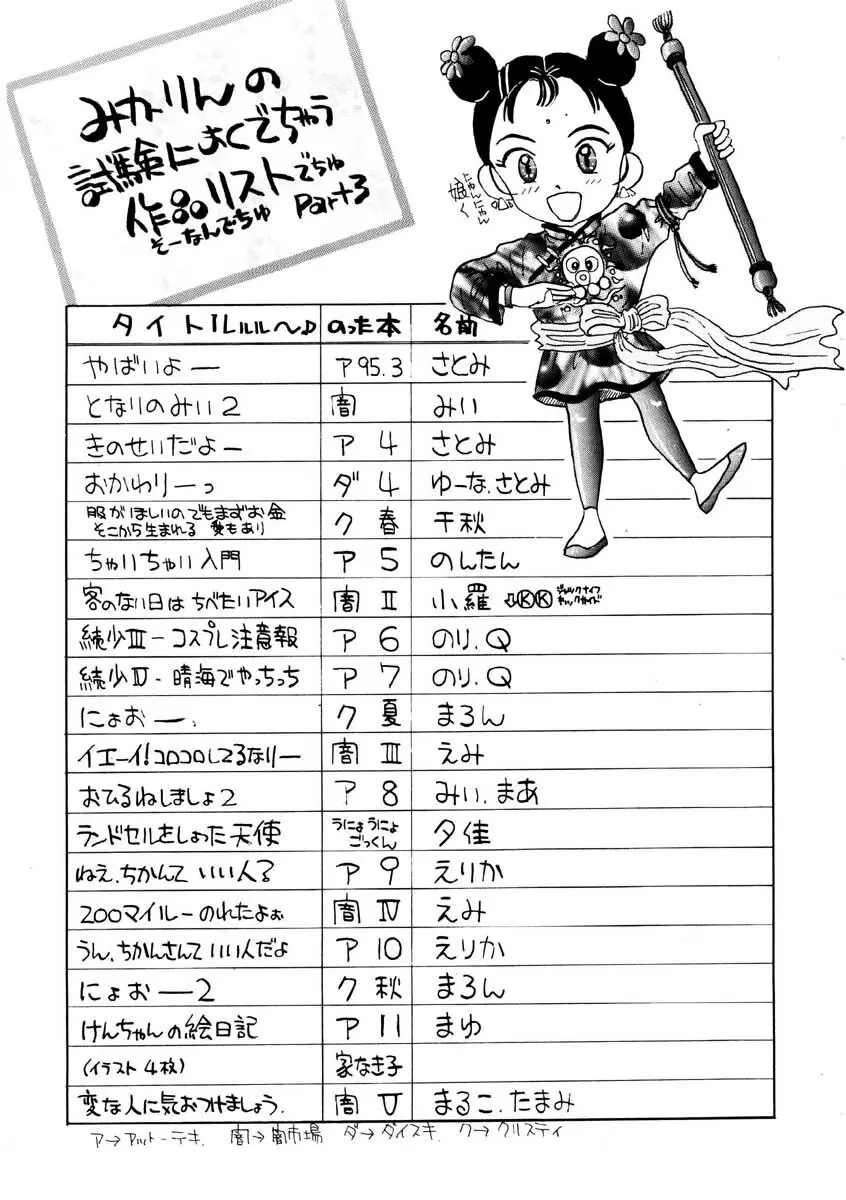 みかりんの
試験におくでちゅう
作品リストでちゅ
そーなんでちゅ Part3
にゃんにゃん
娘く
タイトルルルル〜♪ のった本 名前
やばいよー ア95.3 さとみ
となりのみい2 闇 みい
きのせいだよー ア 4 さとみ
おかわりーっ ダ 4 ゆーな.さとみ
服がほしいのでもまずお金
そこから生まれる 愛もあり ク 春 千秋
ちゃいちゃい入門 ア 5 のんたん
客のない日は ちべたいアイス 闇 Ⅱ 小羅 ⓀⓀ
続少Ⅲ-コスプレ注意報 ア 6 のり.Q
続少Ⅳ-晴海でやっちっち ア 7 のり.Q
にょおー. ク 夏 まろん
イエーイ!コロコロしてるなりー 闇 Ⅲ えみ
おひるねしましょ2 ア 8 みい.まあ
ランドセルをしょった天使 うにょうにょ
ごっくん 夕佳
ねえ.ちかんて いい人? ア 9 えりか
200マイルーのれたよぉ 闇 Ⅳ えみ
うん.ちかんさんていい人だよ ア 10 えりか
にょおー2 ク 秋 まろん
けんちゃんの絵日記 ア 11 まゆ
(イラスト 4枚) 家なき子
変な人に気おつけましょう. 闇 Ⅴ まるこ.たまみ
ア→アットーテキ. 闇→闇市場 ダ→ダイスキ. ク→クリスティ